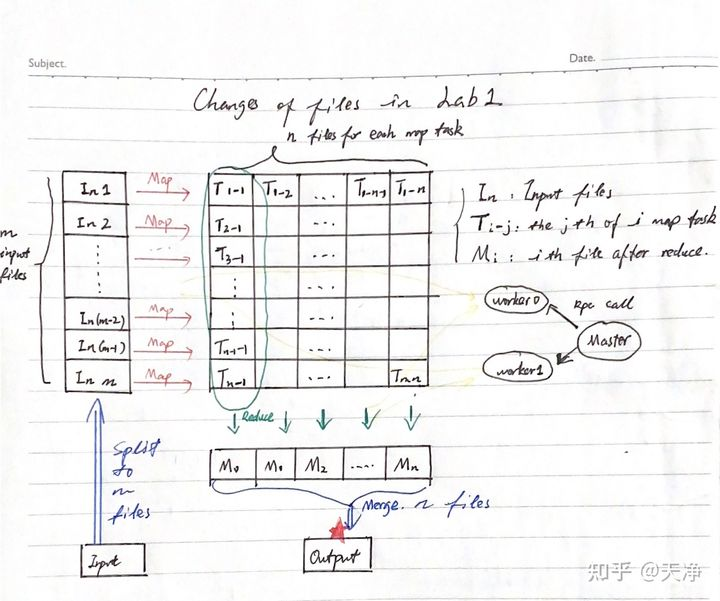 Subject.
Date.
Changes of files in Lab1
n files for each map task
m input files
In 1 Map T1-1 T1-2 .... T1-n-1 T1-n
In 2 Map T2-1 ....
.... T3-1 ....
In(m-2) Map
In(m-1) Map Tn-1-1 ....
In m Map Tn-1 .... Tmn
In : Input files
Ti-j : the jth of i map task
Mi : ith file after reduce.
worker0
Rpc call
Master
worker1
Reduce
M0 M1 M2 .... Mn
Split to m files
Merge n files
Input
Output
知乎 @天净